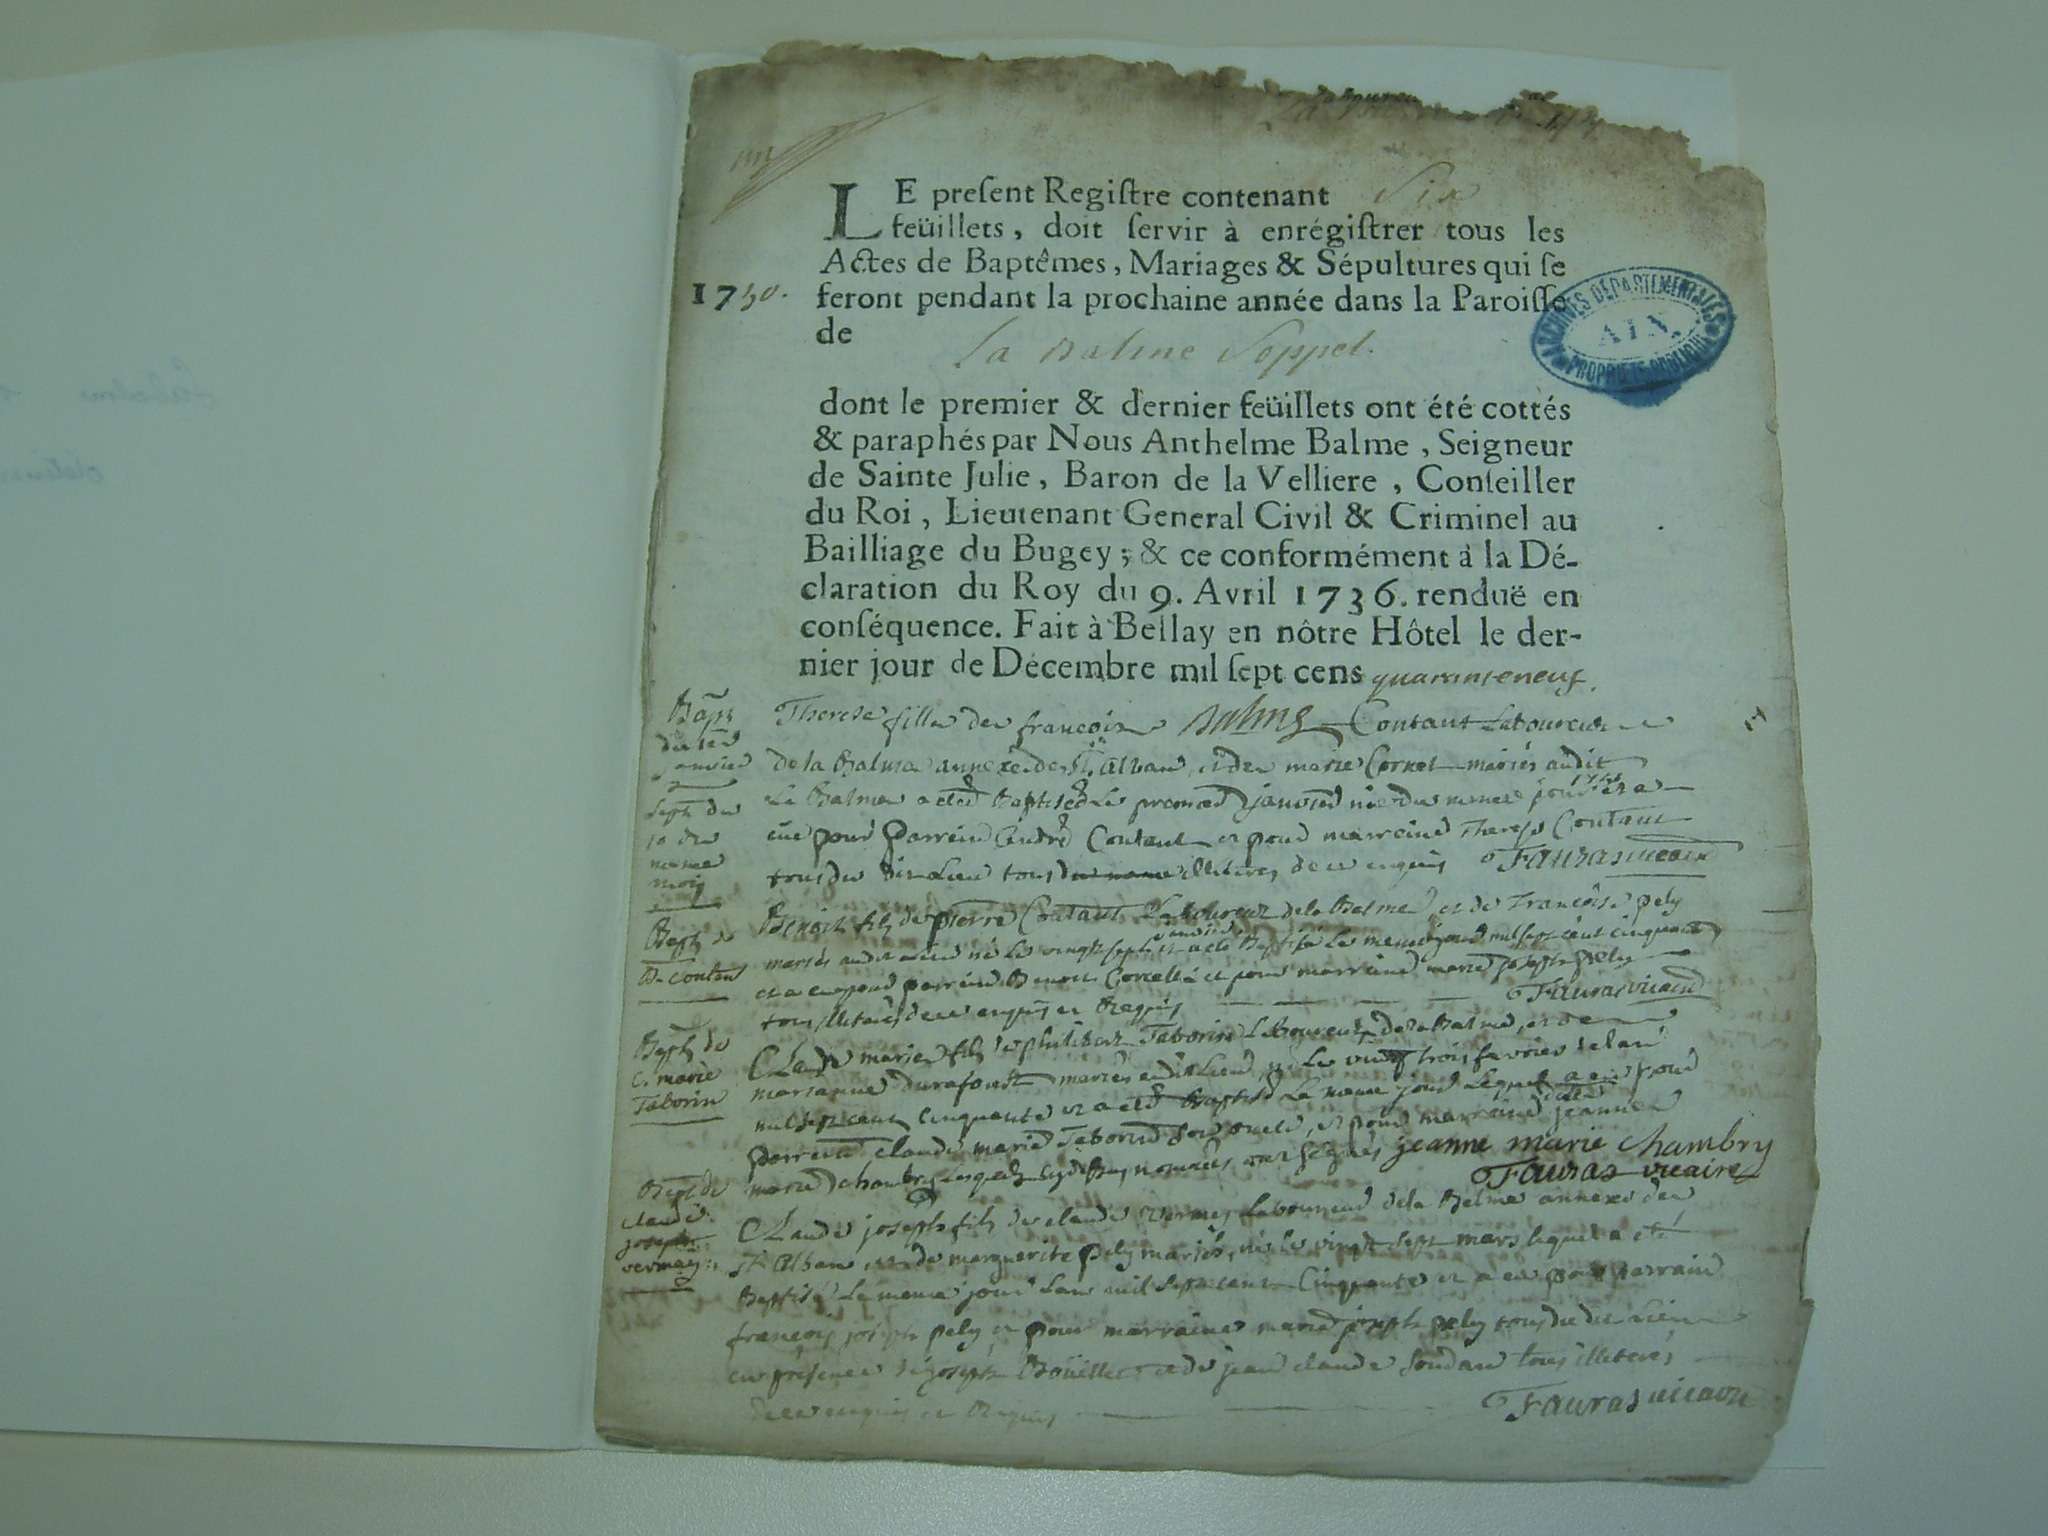 LE preſent Regiſtre contenant Six
feüillets, doit ſervir à enrégiſtrer tous les
Actes de Baptêmes, Mariages & Sépultures qui ſe
1750. feront pendant la prochaine année dans la Paroiſſe
de
La Balme Soppel.
ARCHIVES DEPARTEMENTALES
AIN
PROPRIETE PUBLIQUE
dont le premier & dernier feüillets ont été cottés
& paraphés par Nous Anthelme Balme, Seigneur
de Sainte Julie, Baron de la Velliere, Conſeiller
du Roi, Lieutenant General Civil & Criminel au
Bailliage du Bugey; & ce conformément à la Dé-
claration du Roy du 9. Avril 1736. renduë en
conſéquence. Fait à Bellay en nôtre Hôtel le der-
nier jour de Décembre mil ſept cens quaranteneuf.
Balme
Therese fille de françois Contant Laboureur
de la Balme annexe de St. Alban, et de marie Cornet mariés audit
La Balme a eté Baptisée Le premier janvier née du meme jour et a
eüe pour Parrein André Contant et pour marraine Therese Contant
tous du dit Lieu tous illiteres de ce enquis Fauras vicaire
Bapt de
B. Contant
Benoit fils de pierre Contant Laboureur de la Balme, et de Françoise pely
mariés audit lieu né Le vingt sept janvier et a eté Baptisé Le meme jour mil sept cent cinquante
et a eu pour parrein Benoit et pour marraine marie joseph pely
tous illiteres de ce enquis et Requis Fauras vicaire
Bapt de
C. marie
Taborin
Claude marie fils de philibert Taborin Laboureur de la Balme, et de
marianne durafour mariés audit Lieu, né Le vingt trois fevrier de l'an
mil sept cent Cinquante et a eté Baptisé Le meme jour Lequel a eu pour
Parrein claude marie Taborin son oncle, et pour marraine jeanne
marie chambry jeanne marie chambry
Fauras vicaire
Bapt de
claude
joseph
vermey
Claude joseph fils de claude vermey Laboureur de la Balme annexe de
St Alban, et de marguerite pely mariés, né le vingt sept mars lequel a eté
Baptisé Le meme jour L'an mil sept cent Cinquante et a eu pour parrain
françois joseph pely et pour marraine marie joseph pely tous du dit Lieu
en présence de joseph Boüillet et de jean claude tous illiteres
de ce enquis et Requis Fauras vicaire